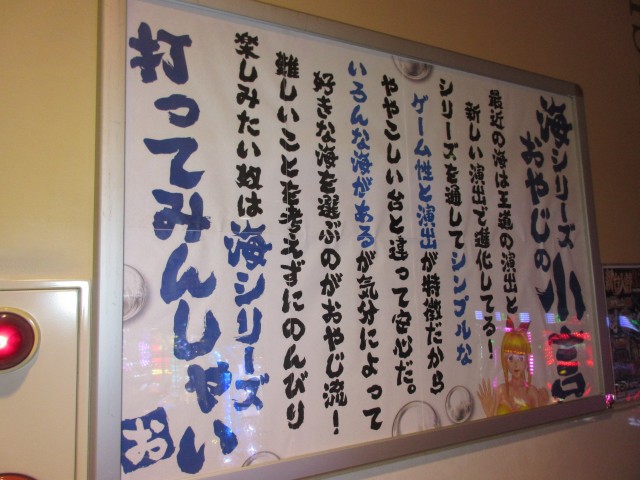 海シリーズ
おやじの
小言
最近の海は王道の演出と
新しい演出で進化してる!
シリーズを通してシンプルな
ゲーム性と演出が特徴だから
ややこしい台と違って安心だ。
いろんな海があるが気分によって
好きな海を選ぶのがおやじ流!
難しいことを考えずにのんびり
楽しみたい奴は海シリーズ
打ってみんしゃい
お